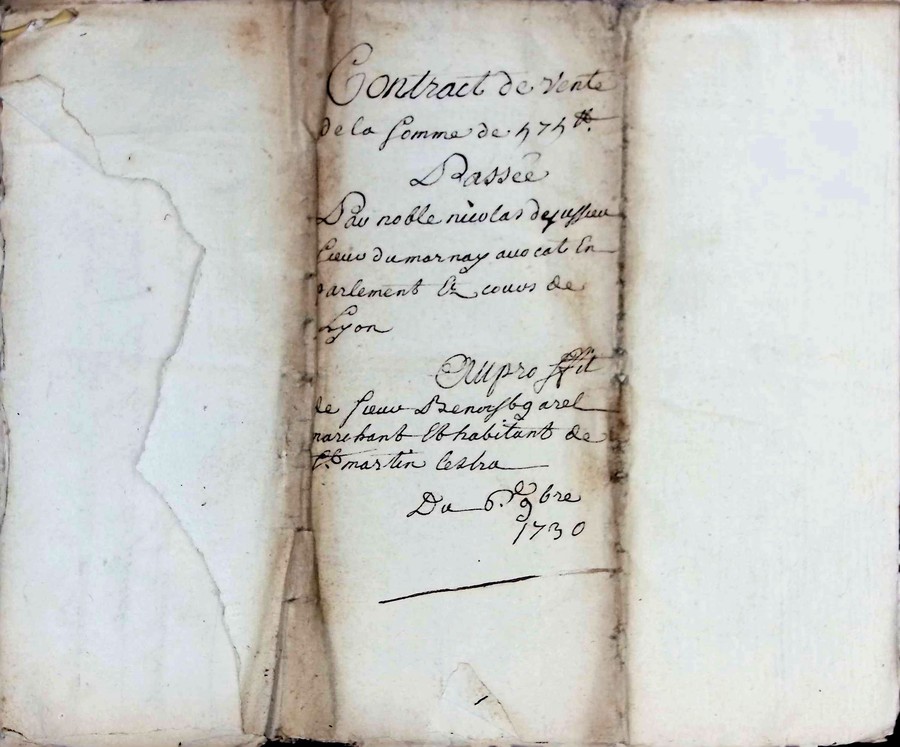 Contract de vente
de la somme de 575 ᵗᵗ.
Passée
Par noble nicolas dejussieu
sieur du marnay avocat En
parlement Et cours de
Lyon
Au proffit
de sieur Benoist garel
marchant Et habitant de
St martin lestra
Du 6.e 9bre
1730